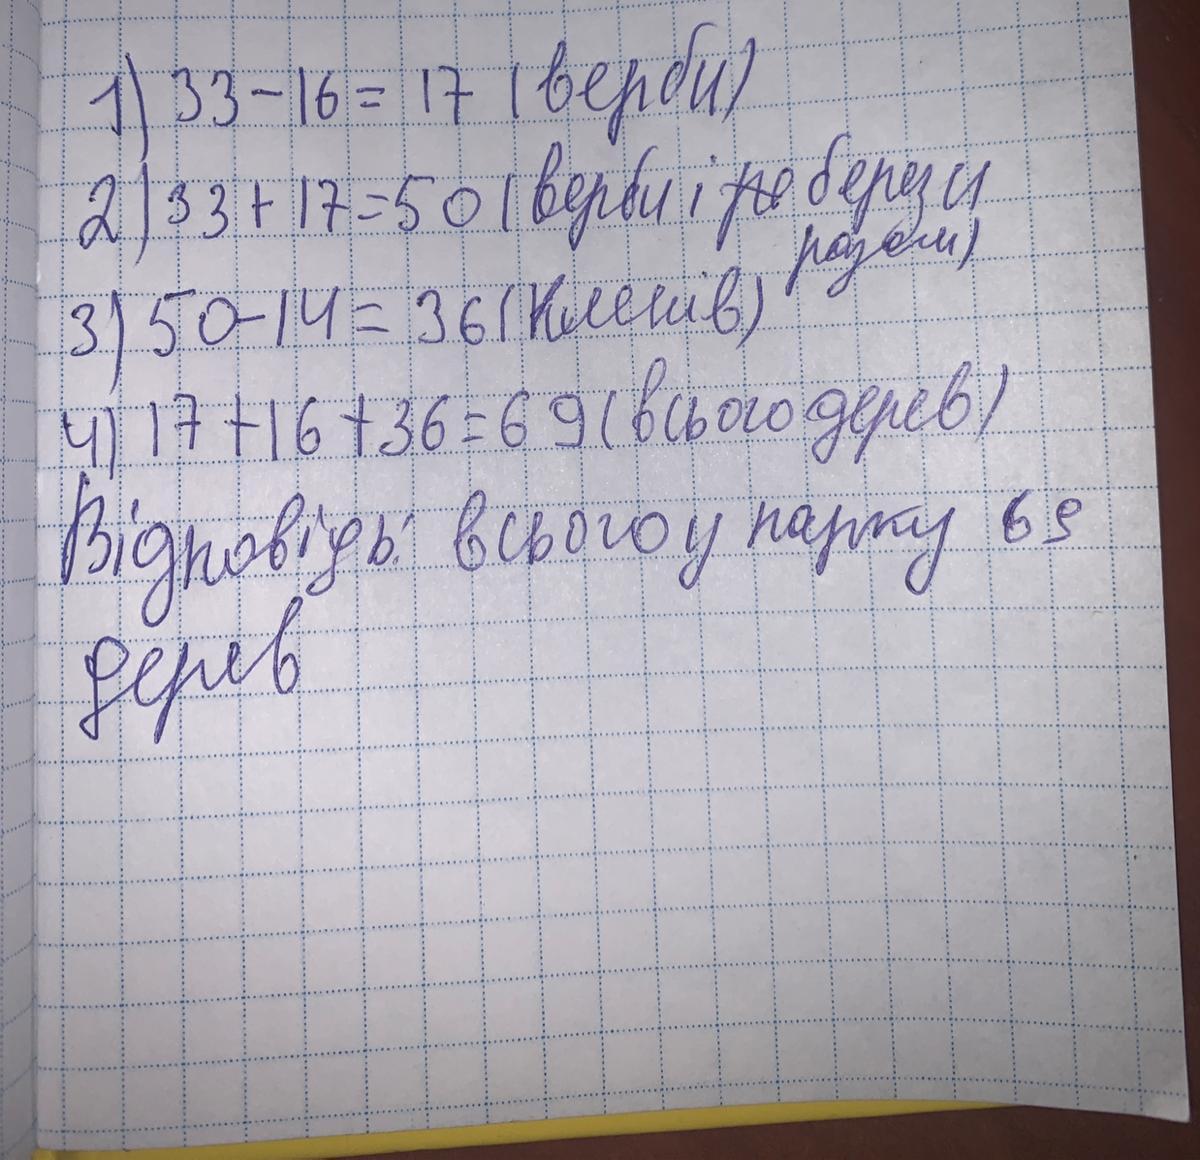 1) 33-16=17 (верби)
2) 33+17=50 (верби і берези
разом)
3) 50-14=36 (кленів)
4) 17+16+36=69 (всього дерев)
Відповідь: всього у парку 69
дерев